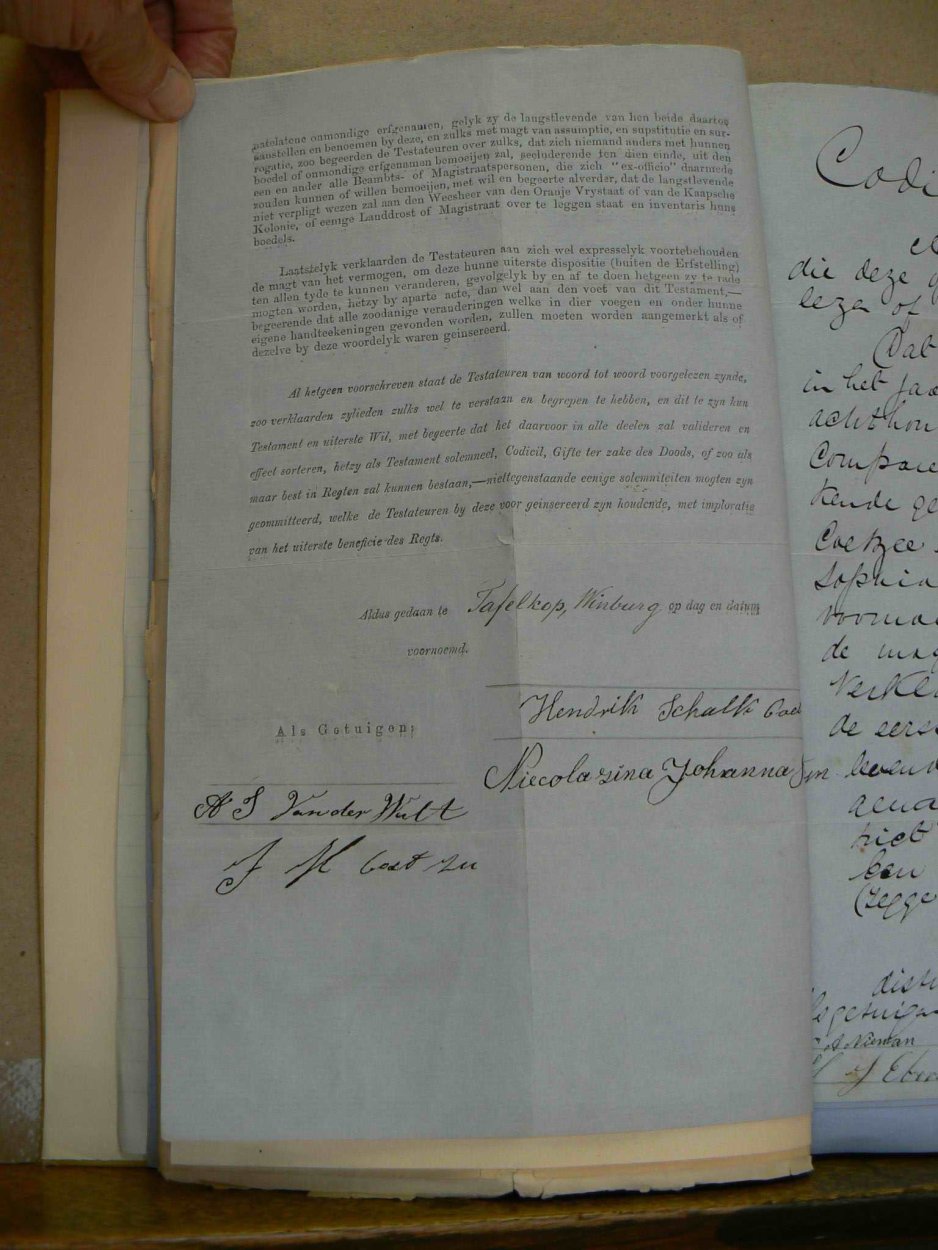 natelatene onmondige erfgenamen, gelyk zy de langstlevende van hen beide daartoe
aanstellen en benoemen by deze, en zulks met magt van assumptie, en supstitutie en sur-
rogatie, zoo begeerden de Testateuren over zulks, dat zich niemand anders met hunnen
boedel of onmondige erfgenamen bemoeijen zal, secluderende ten dien einde, uit den
een en ander alle Beambts- of Magistraatspersonen, die zich "ex-officio" daarmede
zouden kunnen of willen bemoeijen, met wil en begeerte alverder, dat de langstlevende
niet verpligt wezen zal aan den Weesheer van den Oranje Vrystaat of van de Kaapsche
Kolonie, of eenige Landdrost of Magistraat over te leggen staat en inventaris huns
boedels.
Laatstelyk verklaarden de Testateuren aan zich wel expresselyk voortebehouden
de magt van het vermogen, om deze hunne uiterste dispositie (buiten de Erfstelling)
ten allen tyde te kunnen veranderen, gevolgelyk by en af te doen hetgeen zy te rade
mogten worden, hetzy by aparte acte, dan wel aan den voet van dit Testament,—
begeerende dat alle zoodanige veranderingen welke in dier voegen en onder hunne
eigene handteekeningen gevonden worden, zullen moeten worden aangemerkt als of
dezelve by deze woordelyk waren geinsereerd.
Al hetgeen voorschreven staat de Testateuren van woord tot woord voorgelezen zynde,
zoo verklaarden zylieden zulks wel te verstaan en begrepen te hebben, en dit te zyn kun
Testament en uiterste Wil, met begeerte dat het daarvoor in alle deelen zal valideren en
effect sorteren, hetzy als Testament solemneel, Codicil, Gifte ter zake des Doods, of zoo als
maar best in Regten zal kunnen bestaan,—niettegenstaande eenige solemniteiten mogten zyn
geommitteerd, welke de Testateuren by deze voor geinsereerd zyn houdende, met imploratie
van het uiterste beneficie des Regts.
Aldus gedaan te Tafelkop, Winburg, op dag en datum
voornoemd.
Hendrik Schalk Coe
Als Getuigen;
Niecolasina Johanna
A S Van der Walt
J H
Codi
die deze
lezen of
Dat
in het jaa
achthon
Compare
kende ge
Coetzee
Sophia
voorna
de mag
Verkla
de eers
levend
niet
een
(Zegge
Nieman